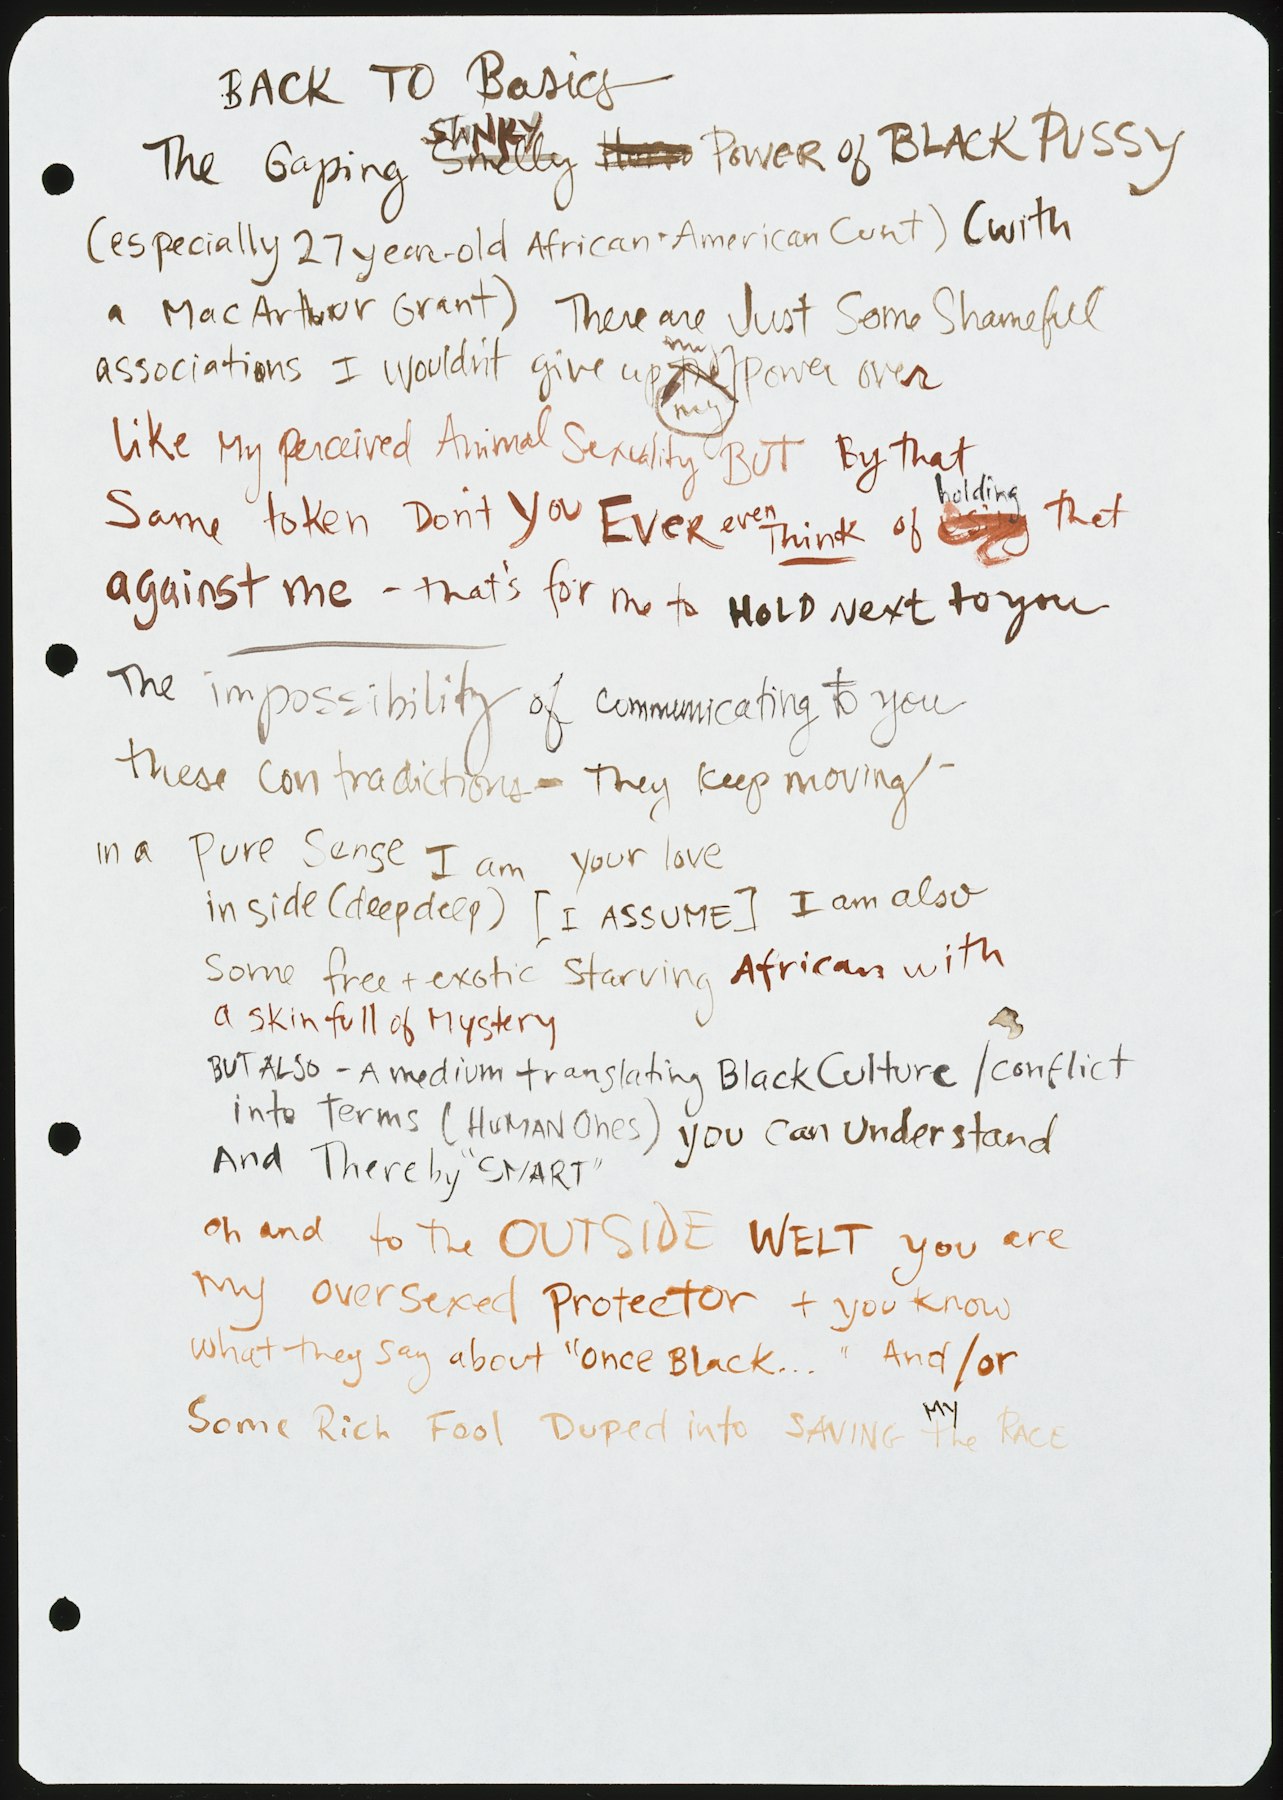 BACK TO Basics
STINKY
The Gaping Smelly Power of BLACK PUSSY
(especially 27 year-old African-American Cunt) (with
a MacArthur Grant) There are Just Some Shamefull
associations I wouldn't give up my power over
Like My perceived Animal Sexuality BUT By that
holding
Same token Don't You EVER even Think of that
against me - that's for me to HOLD Next to you
The impossibility of communicating to you
these contradictions - They keep moving -
in a Pure Sense I am your love
inside (deepdeep) [I ASSUME] I am also
Some free + exotic Starving African with
a skinfull of Mystery
BUT ALSO - A medium translating Black Culture / conflict
into Terms (HUMAN Ones) you can Understand
And Thereby "SMART"
oh and to the OUTSIDE WELT you are
my oversexed Protector + you know
what they say about "once Black..." And/or
MY
Some Rich Fool Duped into SAVING the RACE